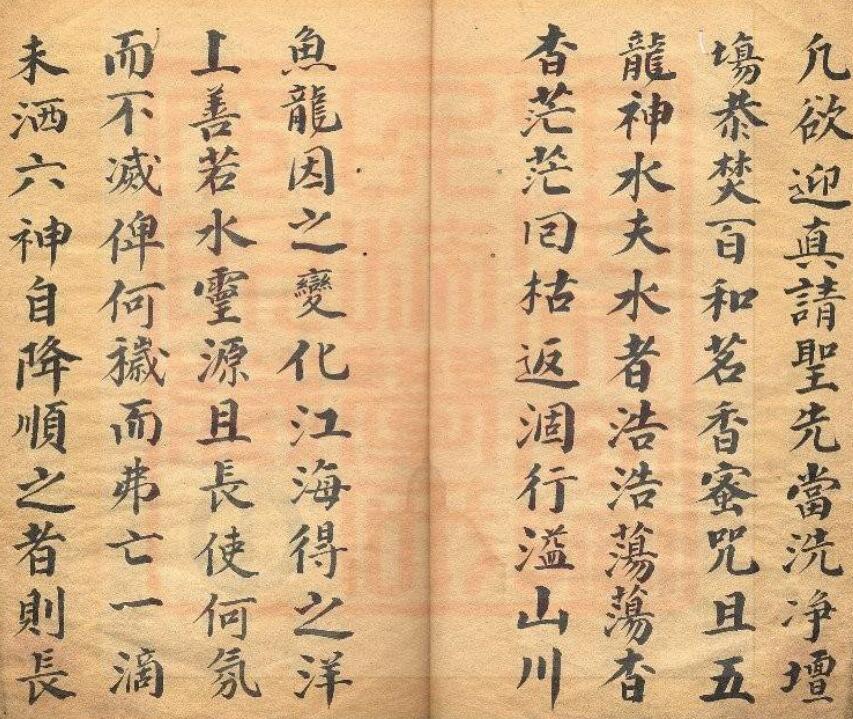 凡欲迎真請聖先當洗净壇
塲恭焚百和茗香蜜咒且五
龍神水夫水者浩浩蕩蕩杳
杳茫茫囘枯返涸行溢山川
魚龍因之變化江海得之洋
上善若水靈源且長使何氛
而不滅俾何穢而弗亡一滴
未洒六神自降順之者則長